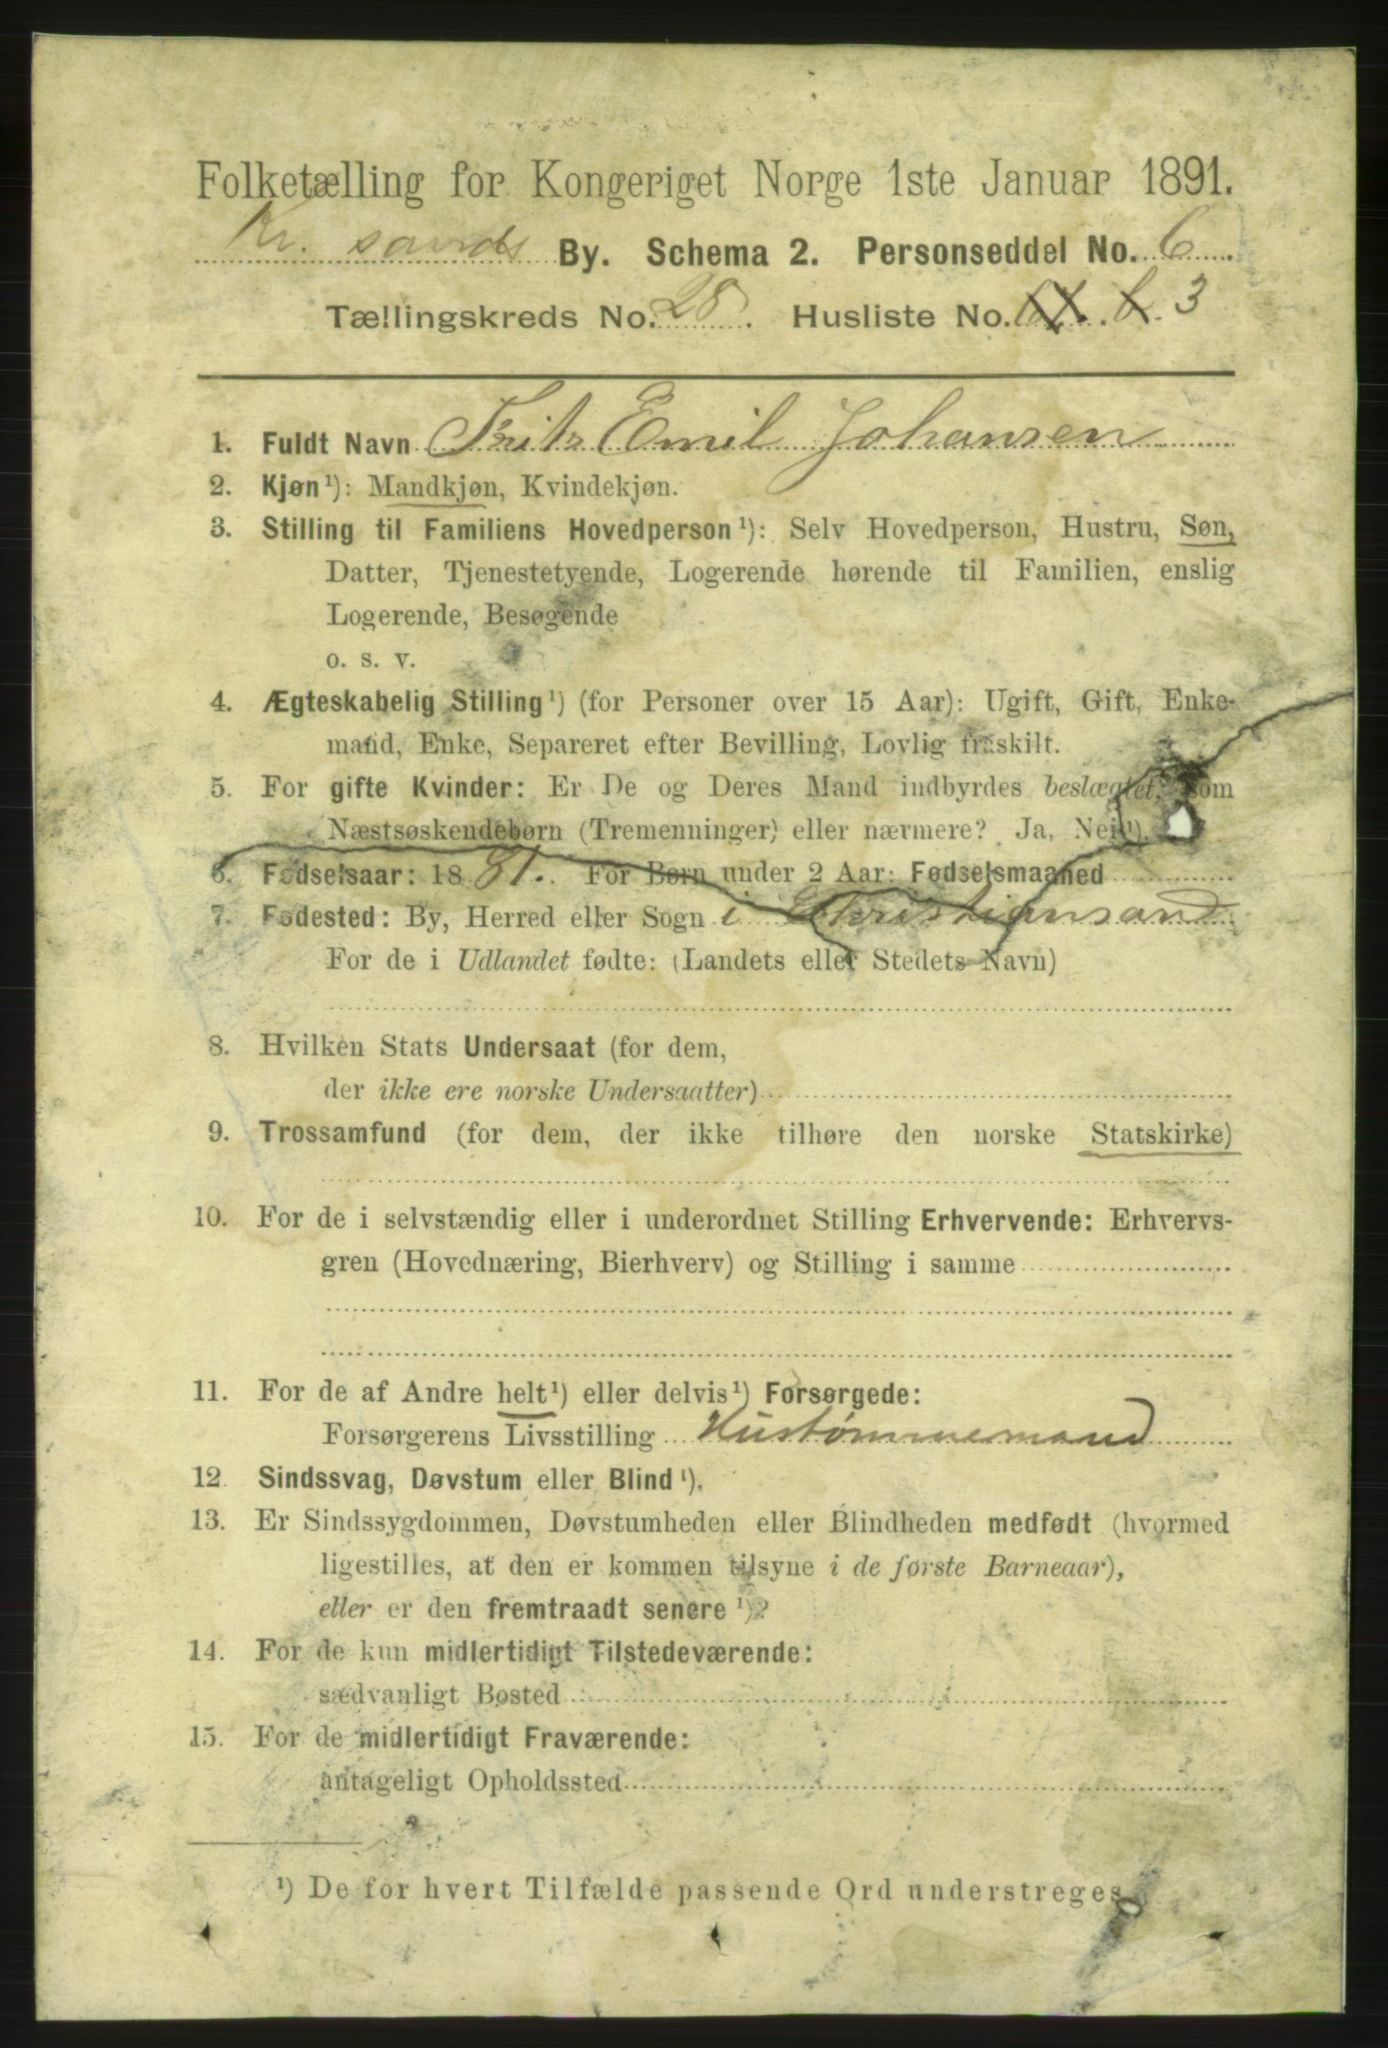 Folketælling for Kongeriget Norge 1ste Januar 1891.
Kr. sands By. Schema 2. Personseddel No. 6.
Tællingskreds No. 28. Husliste No. 3
1. Fuldt Navn Fritz Emil Johansen
2. Kjøn¹): Mandkjøn, Kvindekjøn.
3. Stilling til Familiens Hovedperson¹): Selv Hovedperson, Hustru, Søn,
Datter, Tjenestetyende, Logerende hørende til Familien, enslig
Logerende, Besøgende
o. s. v.
4. Ægteskabelig Stilling¹) (for Personer over 15 Aar): Ugift, Gift, Enke-
mand, Enke, Separeret efter Bevilling, Lovlig fraskilt.
5. For gifte Kvinder: Er De og Deres Mand indbyrdes beslægtet, som
Næstsøskendebørn (Tremenninger) eller nærmere? Ja, Nei¹).
6. Fødselsaar: 1881. For Børn under 2 Aar: Fødselsmaaned
7. Fødested: By, Herred eller Sogn i Christiansand
For de i Udlandet fødte: (Landets eller Stedets Navn)
8. Hvilken Stats Undersaat (for dem,
der ikke ere norske Undersaatter)
9. Trossamfund (for dem, der ikke tilhøre den norske Statskirke)
10. For de i selvstændig eller i underordnet Stilling Erhvervende: Erhvervs-
gren (Hovednæring, Bierhverv) og Stilling i samme
11. For de af Andre helt¹) eller delvis¹) Forsørgede:
Forsørgerens Livsstilling Hustømmermand
12. Sindssvag, Døvstum eller Blind¹).
13. Er Sindssygdommen, Døvstumheden eller Blindheden medfødt (hvormed
ligestilles, at den er kommen tilsyne i de første Barneaar),
eller er den fremtraadt senere¹)?
14. For de kun midlertidigt Tilstedeværende:
sædvanligt Bosted
15. For de midlertidigt Fraværende:
antageligt Opholdssted
¹) De for hvert Tilfælde passende Ord understreges.